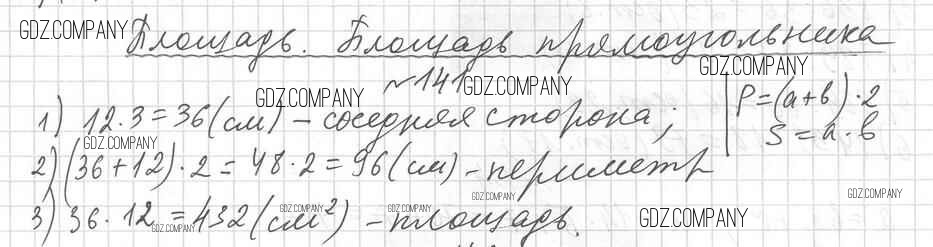 Площадь. Площадь прямоугольника
№141
P=(a+b)·2
S=a·b
1) 12·3=36(см) – соседняя сторона;
2) (36+12)·2=48·2=96(см) – периметр
3) 36·12=432(см²) – площадь.
GDZ.COMPANY
GDZ.COMPANY
GDZ.COMPANY
GDZ.COMPANY
GDZ.COMPANY
GDZ.COMPANY
GDZ.COMPANY
GDZ.COMPANY
GDZ.COMPANY
GDZ.COMPANY
GDZ.COMPANY